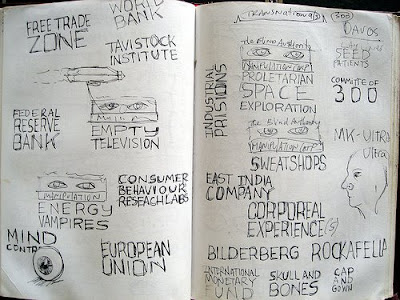 WORLD
BANK
FREE TRADE
ZONE
TAVISTOCK
INSTITUTE
FEDERAL
RESERVE
BANK
EMPTY
TELEVISION
MANIPULATION
ENERGY
VAMPIRES
CONSUMER
BEHAVIOUR
RESEACH LABS
MIND
CONTROL
EUROPEAN
UNION
(300)
DAVOS
INDUSTRIAL
PRISIONS
The Blind Authority
MANIPULATION CORP
PROLETARIAN
SPACE
EXPLORATION
SEED
PATIENTS
COMMITTE OF
300
The Blind Authority
MANIPULATION CORP
SWEATSHOPS
MK-ULTRA
Ultra
EAST INDIA
COMPANY
CORPOREAL
EXPERIENCE(S)
BILDERBERG
ROCKAFELLA
INTERNATIONAL
MONETARY
FUND
SKULL AND
BONES
CAP
AND
GOWN